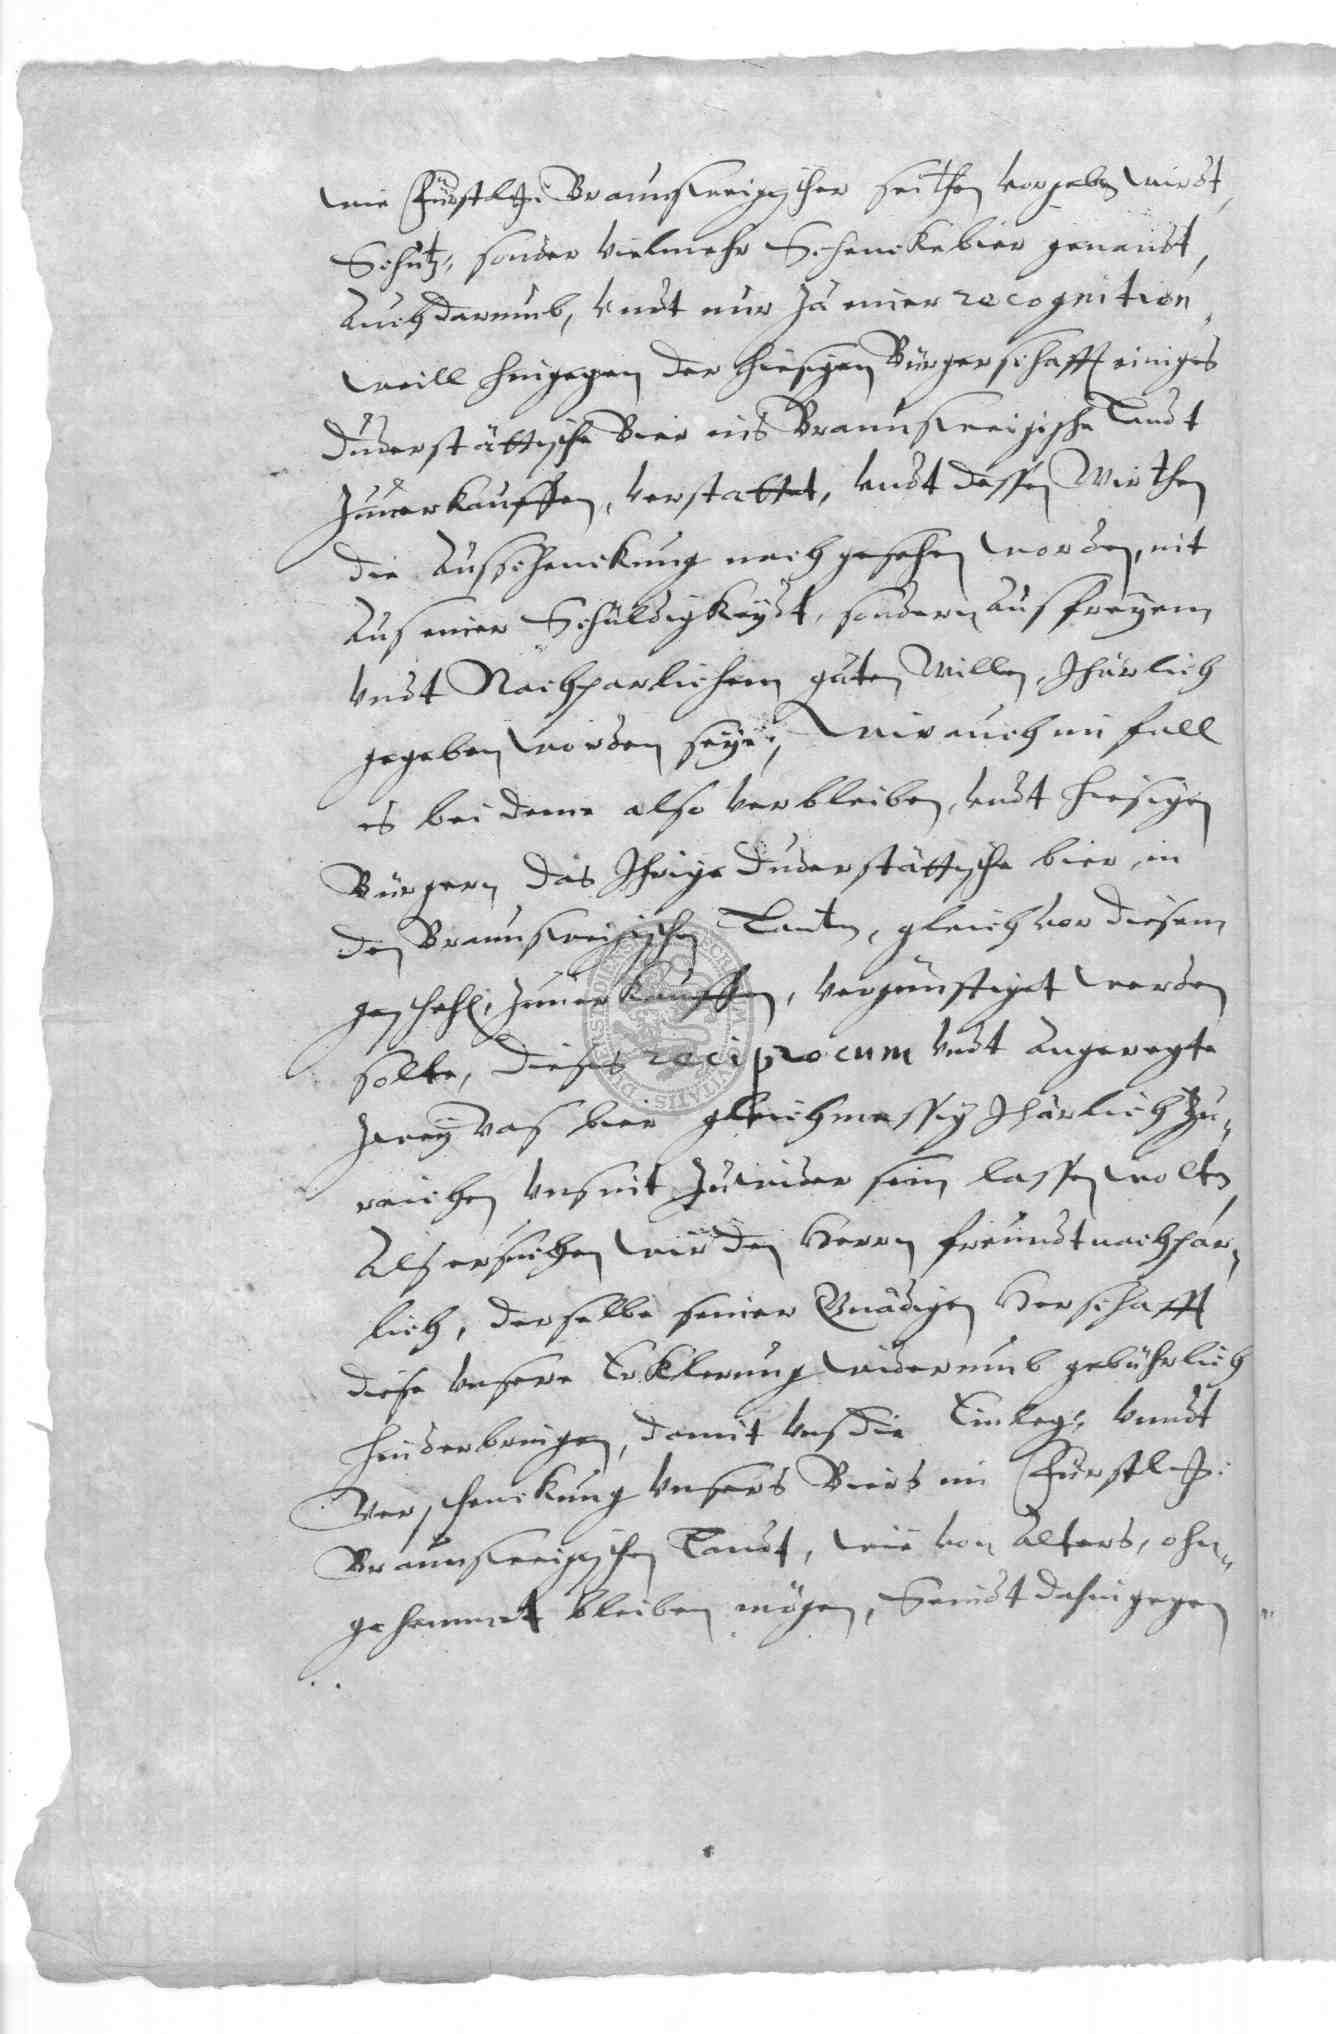 wie Fürstl. Braunschweigischer seithen vorgeben wirdt,
Schutz, sonder vielmehr Schenckebier genandt,
Auch darumb, vndt nur zu einer recognition,
weill hingegen der hiesigen Bürgerschafft einiges
Duderstättische Bier ins Braunschweigische Landt
zuuerkauffen, verstattet, vndt dessen Wirthen
die Ausschenckung nachgesehen worden, nit
Aus einer Schuldigkeydt, sondern aus freyem
vndt Nachparlichem guten Willen, Jhärlich
gegeben worden seye, wir auch im fall
es bei deme also verbleiben, vndt hiesigen
Bürgern das Jhrige Duderstättische bier, in
den Braunschweigischen Landen, gleich vor diesem
geschehen, zuuerkauffen, vergünstiget werden
solte, dieses reciprocum vndt angeregte
zwey Vas bier gleichmessig Jhärlich zu
reichen vns nit zuwider sein lassen wolten,
Als ersuchen wir den Herrn freundtnachpar,
lich, derselbe seiner Gnädigen Herschafft
diese vnsere Erklerung widerumb gebührlich
hinderbringen, damit vns die Einleg, vnndt
Verschenckung vnsers Biers im Fürstl.
Braunschweigischen Landt, wie von alters, ohn,
gehemmet bleiben mögen, Seindt dahingegen